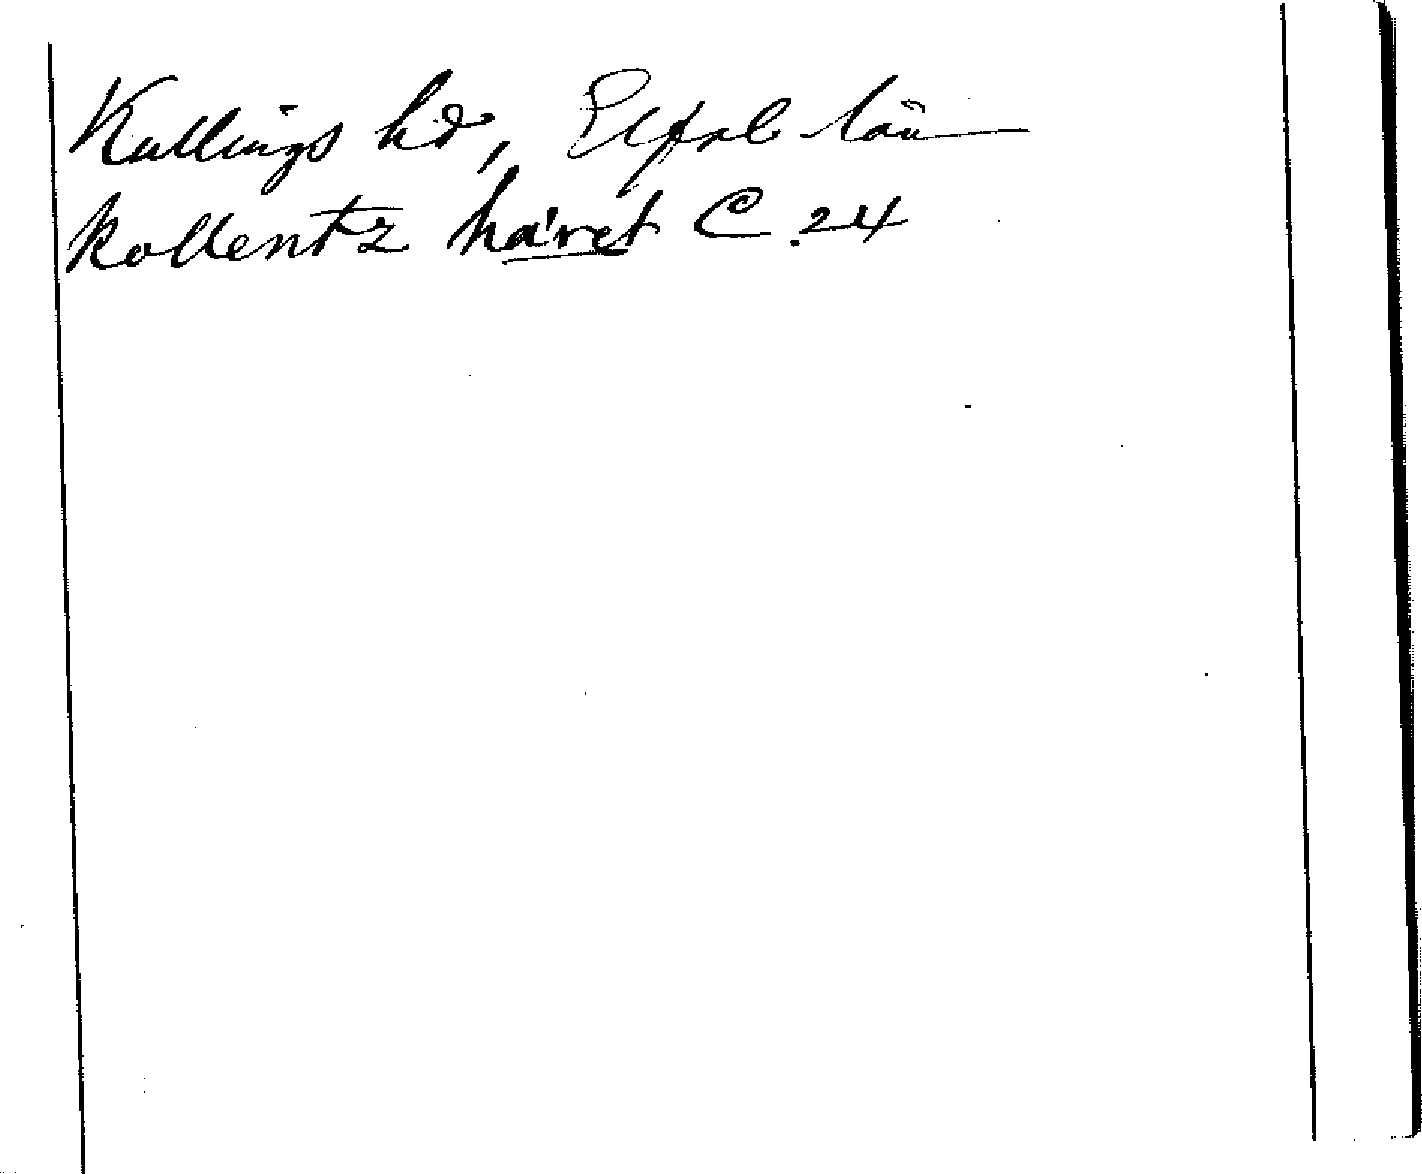 Kullings hd, Elfsb län
kollentz häret C. 24